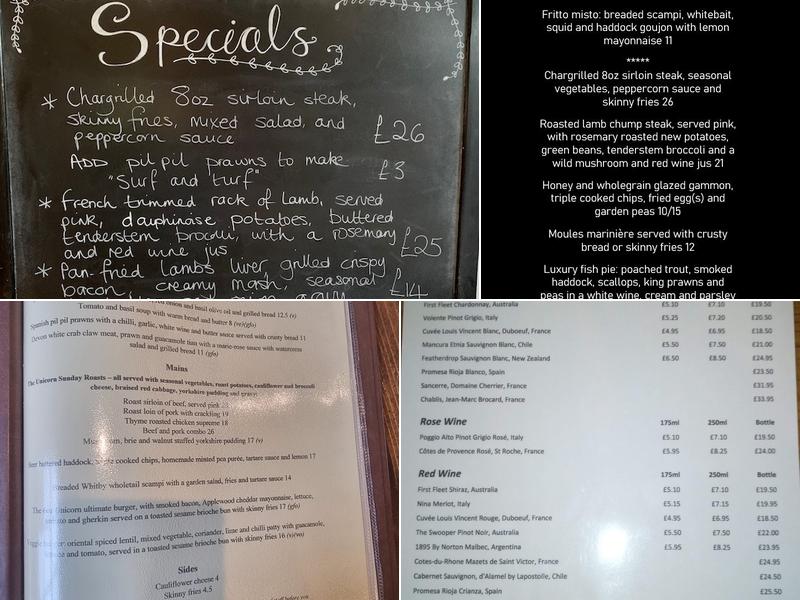 Specials
* Chargrilled 8oz sirloin steak,
skinny fries, mixed salad, and
peppercorn sauce £26
ADD pil pil prawns to make
"Surf and turf" £3
* French trimmed rack of lamb, served
pink, dauphinoise potatoes, buttered
tenderstem brocoli, with a rosemary
and red wine jus £25
* Pan-fried lambs liver, grilled crispy
bacon, creamy mash, seasonal £14
Fritto misto: breaded scampi, whitebait,
squid and haddock goujon with lemon
mayonnaise 11
*****
Chargrilled 8oz sirloin steak, seasonal
vegetables, peppercorn sauce and
skinny fries 26
Roasted lamb chump steak, served pink,
with rosemary roasted new potatoes,
green beans, tenderstem broccoli and a
wild mushroom and red wine jus 21
Honey and wholegrain glazed gammon,
triple cooked chips, fried egg(s) and
garden peas 10/15
Moules marinière served with crusty
bread or skinny fries 12
Luxury fish pie: poached trout, smoked
haddock, scallops, king prawns and
peas in a white wine, cream and parsley
onion and basil olive oil and grilled bread 12.5 (v)
Tomato and basil soup with warm bread and butter 8 (ve)(gfo)
Spanish pil pil prawns with a chilli, garlic, white wine and butter sauce served with crusty bread 11
Devon white crab claw meat, prawn and guacamole tian with a marie-rose sauce with watercress
salad and grilled bread 11 (gfo)
Mains
The Unicorn Sunday Roasts – all served with seasonal vegetables, roast potatoes, cauliflower and broccoli
cheese, braised red cabbage, yorkshire pudding and gravy:
Roast sirloin of beef, served pink
Roast loin of pork with crackling 19
Thyme roasted chicken supreme 18
Beef and pork combo 26
brie and walnut stuffed yorkshire pudding 17 (v)
Beer battered haddock, cooked chips, homemade minted pea purée, tartare sauce and lemon 17
Breaded Whitby wholetail scampi with a garden salad, fries and tartare sauce 14
The Unicorn ultimate burger, with smoked bacon, Applewood cheddar mayonnaise, lettuce,
and gherkin served on a toasted sesame brioche bun with skinny fries 17 (gfo)
oriental spiced lentil, mixed vegetable, coriander, lime and chilli patty with guacamole,
and tomato, served in a toasted sesame brioche bun with skinny fries 16
Sides
Cauliflower cheese 4
Skinny fries 4.5
First Fleet Chardonnay, Australia £5.10 £7.10 £19.50
Volente Pinot Grigio, Italy £5.25 £7.20 £20.50
Cuvée Louis Vincent Blanc, Duboeuf, France £4.95 £6.95 £18.50
Mancura Etnia Sauvignon Blanc, Chile £5.50 £7.50 £21.00
Featherdrop Sauvignon Blanc, New Zealand £6.50 £8.50 £24.95
Promesa Rioja Blanco, Spain £23.50
Sancerre, Domaine Cherrier, France £31.95
Chablis, Jean-Marc Brocard, France £33.95
Rose Wine 175ml 250ml Bottle
Poggio Alto Pinot Grigio Rosé, Italy £5.10 £7.10 £19.50
Côtes de Provence Rosé, St Roche, France £5.95 £8.25 £24.00
Red Wine 175ml 250ml Bottle
First Fleet Shiraz, Australia £5.10 £7.10 £19.50
Nina Merlot, Italy £5.15 £7.15 £19.95
Cuvée Louis Vincent Rouge, Duboeuf, France £4.95 £6.95 £18.50
The Swooper Pinot Noir, Australia £5.50 £7.50 £22.00
1895 By Norton Malbec, Argentina £5.95 £8.25 £23.95
Cotes-du-Rhone Mazets de Saint Victor, France £24.95
Cabernet Sauvignon, d'Alamel by Lapostolle, Chile £24.50
Promesa Rioja Crianza, Spain £25.50